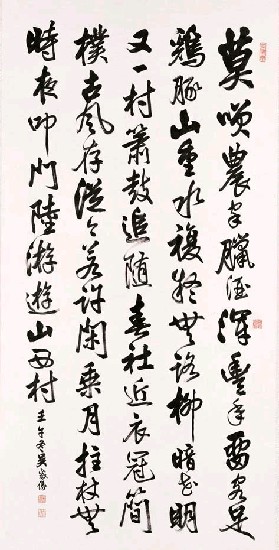 莫咲農家臘酒渾豐年留客足
鷄豚山重水複疑無路柳暗花明
又一村簫鼓追隨春社近衣冠簡
樸古風存從今若許閑乘月拄杖無
時夜叩門陸游遊山西村
壬午冬吳家